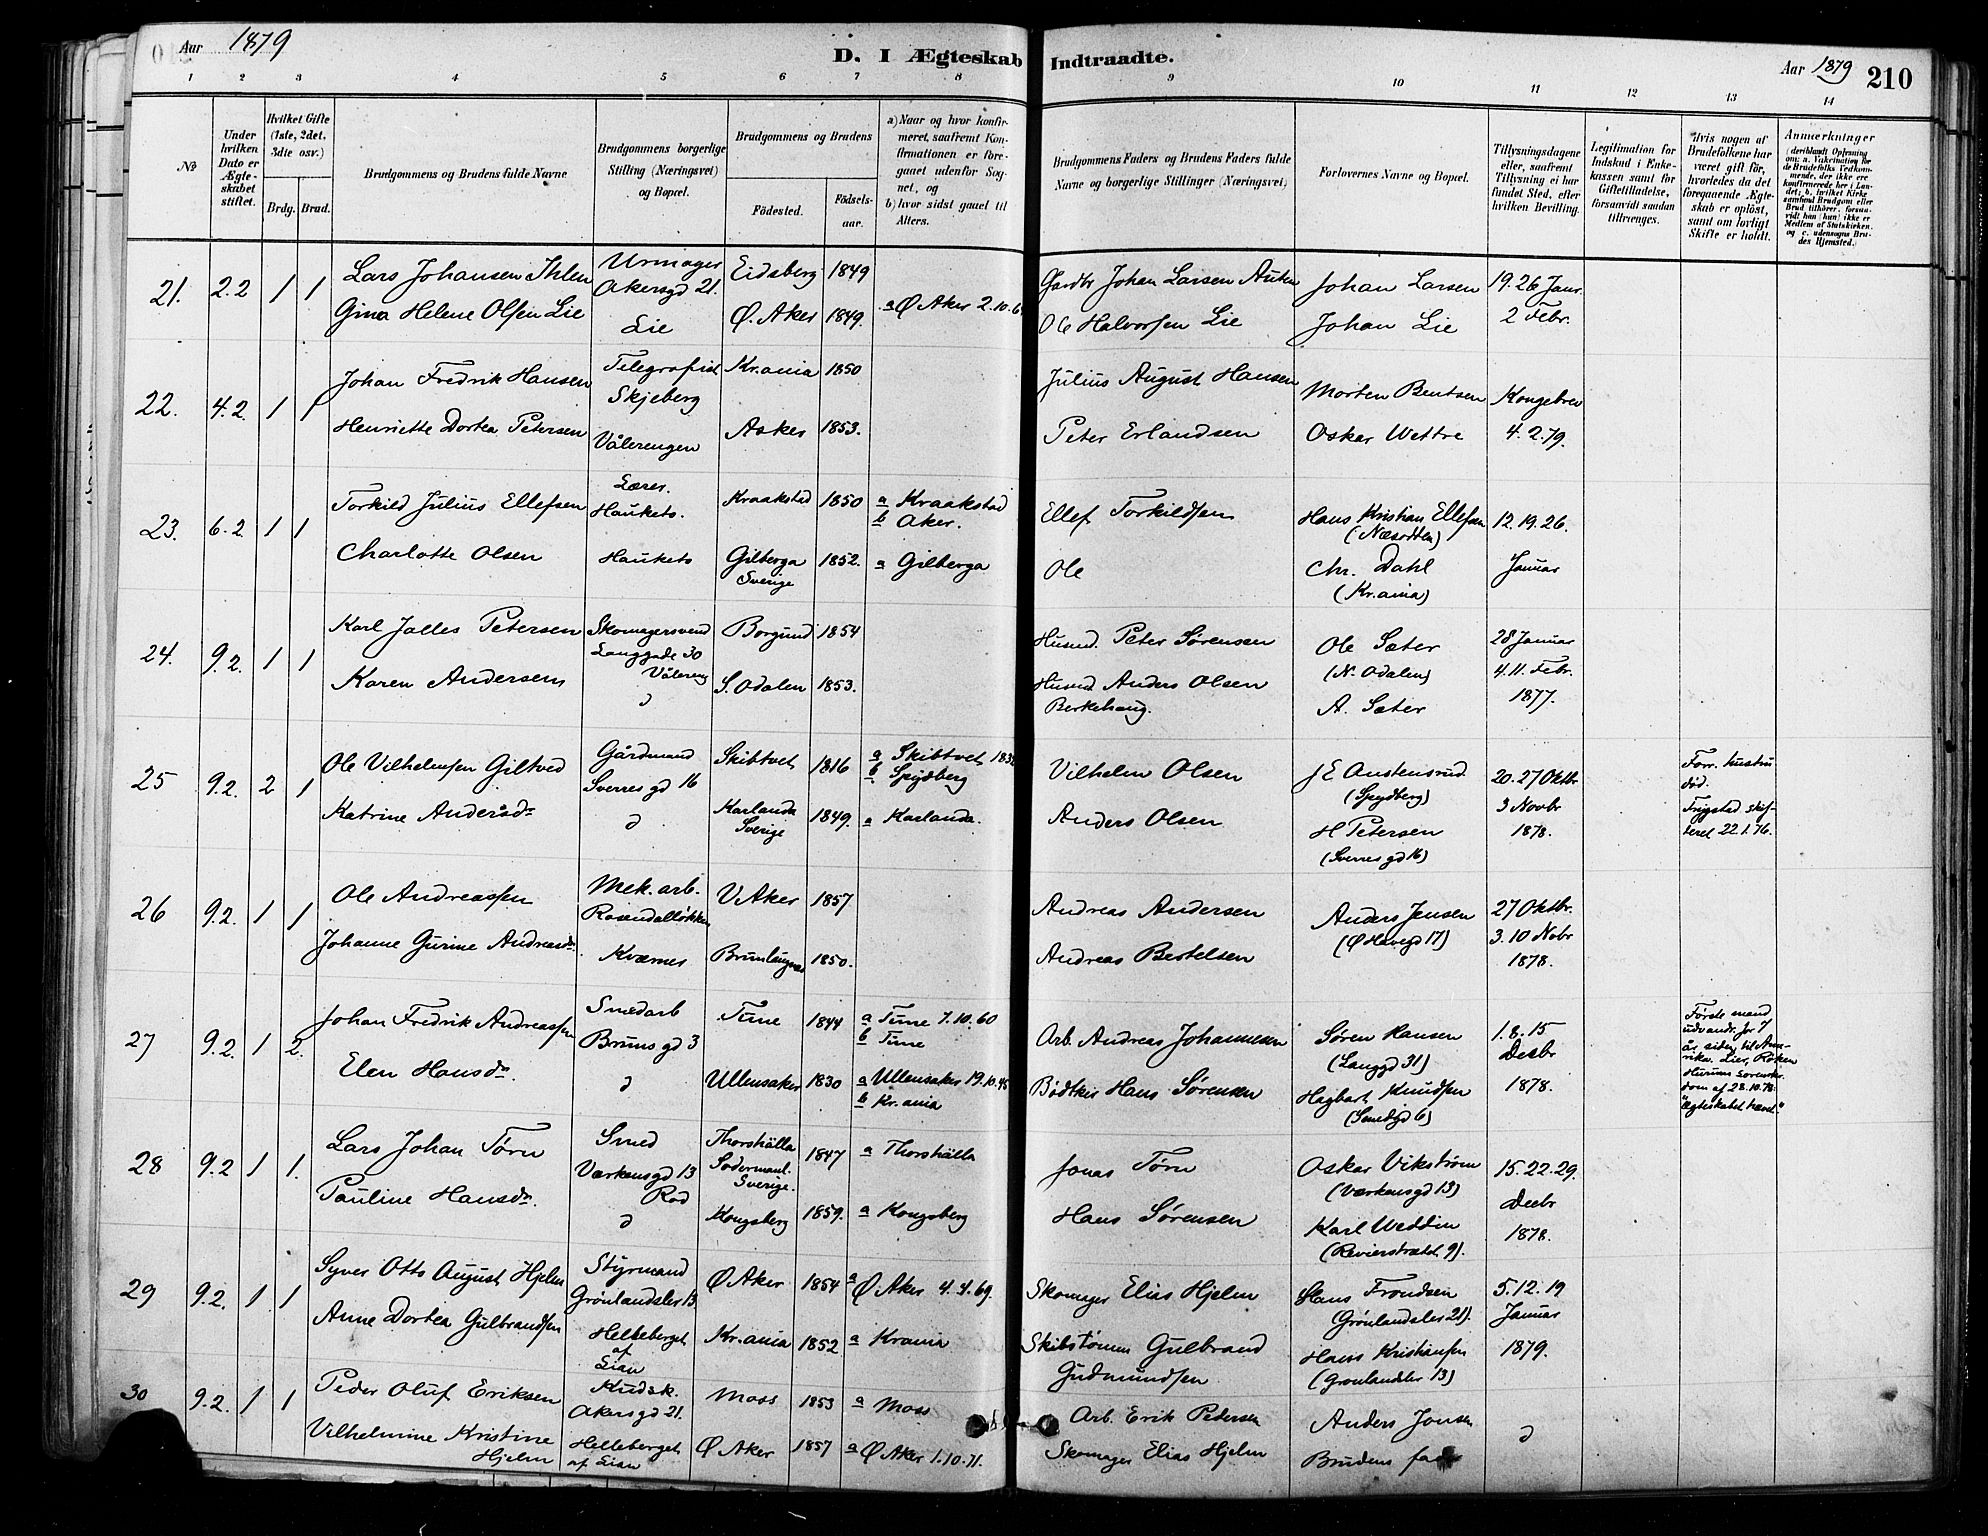 Aar 1879
D. I Ægteskab Indtraadte.
Aar 1879 210
1 2 3 4 5 6 7 8 9 10 11 12 13 14
No
Under hvilken Dato er Ægteskabet stiftet.
Hvilket Gifte (1ste, 2det, 3die osv.)
Brdg. Brud.
Brudgommens og Brudens fulde Navne
Brudgommens borgerlige Stilling (Næringsvei) og Bopæl.
Brudgommens og Brudens
Födested.
Födsels-aar.
a) Naar og hvor konfirmeret, saafremt Konfirmationen er foregaaet udenfor Sognet, og
b) hvor sidst gaaet til Alters.
Brudgommens Faders og Brudens Faders fulde Navne og borgerlige Stillinger (Næringsvei)
Forlovernes Navne og Bopæl.
Tillysningsdagene eller, saafremt Tillysning ei har fundet Sted, efter hvilken Bevilling.
Legitimation for Indskud i Enkekassen samt for Giftetilladelse, forsaavidt saadan tiltrænges.
Hvis nogen af Brudefolkene har været gift för, hvorledes da det foregaaende Ægteskab er oplöst, samt om lovligt Skifte er holdt.
Anmerkninger (deriblandt Oplysning om: a. Vakcination for de Brudefolks Vedkommende, der ikke ere konfirmerede her i Landet; b. hvilket Kirkesamfund Brudgom eller Brud tilhörer, forsaavidt han (hun) ikke er Medlem af Statskirken, og c. udensogns Brudes Hjemsted.
21. 2.2 1 1 Lars Johansen Ihlen Urmager Akersgd 21. Eidsberg 1849 Gardbr Johan Larsen Johan Larsen 19. 26 Janr.
Gina Helene Olsen Lie Lie Ø. Aker 1849. a Ø Aker 2.10.6 Ole Halvorsen Lie Johan Lie 2 Febr.
22. 4.2. 1 1 Johan Fredrik Hansen Telegrafist Skjeberg Kr.ania 1850 Julius August Hansen Morten Bentsen Kongebrev
Henriette Dortea Petersen Vålerengen Asker 1853. Peter Erlandsen Oskar Wettre 4.2.79.
23. 6.2 1 1 Torkild Julius Ellefsen Lærer. Haukets. Kraakstad 1850 a Kraakstad b Aker. Ellef Torkildsen Hans Kristian Ellefsen (Næsodden) 12. 19. 26.
Charlotte Olsen Haukets Gilberga Sverige 1852. a Gilberga Ole Chr. Dahl (Kr.ania) Januar
24. 9.2. 1 1 Karl Jalles Petersen Skomagersvend Langgade 30 Vålereng Borgund 1854 Husmd. Peter Sørensen Ole Sæter (N. Odalen) 28 Januar
Karen Andersen d S. Odalen 1853. Husmd Anders Olsen Berkehaug. A. Sæter 4. 11. Febr. 1877.
25 9.2. 2 1 Ole Vilhelmsen Giltved Gårdmand Sverres gd 16 Skibtvet 1816 a Skibtvet b Spydberg Vilhelm Olsen J E Austensrud (Spydberg) 20. 27 Oktbr Forr. hustru død. Frigstad skifteret 22.1.76.
Katrine Andersd. d Karlanda Sverige 1849. a Karlanda. Anders Olsen H Petersen (Sverres gd 16) 3 Novbr 1878.
26 9.2. 1 1 Ole Andreassen Mek. arb. Rosendalløkken V. Aker 1857 Andreas Andersen Anders Jensen (Ø Havegd 17) 27 Oktbr.
Johanne Gurine Andreasd. Kværner Brunlangnes 1850. Andreas Bertelsen 3. 10 Nobr 1878.
27 9.2. 1 2. Johan Fredrik Andreassen Smedarb Bruns gd 3 Tune 1844 a Tune 7.10.60 b Tune Arb. Andreas Johannesen Søren Hansen (Langgd 31) 1. 8. 15 Første mand udvandr. for 7 år siden til Amerika. Lier, Røken Hurums Sorenskr. dom af 28.10.78. "Ægteskabet hævet."
Elen Hansd. d Ullensaker 1830 a Ullensaker 19.10.45 b Kr.ania Bødtker Hans Sørensen Hagbart Knudsen (Smedgd 6) Decbr 1878.
28 9.2 1 1. Lars Johan Törn Smed Værkensgd 13 Rod Thorshälla Södermanl. Sverige. 1847 a Thorshälla Jonas Törn Oskar Vikström (Værkensgd 13) 15. 22. 29.
Pauline Hansd. d Kongsberg 1859. a Kongsberg Hans Sørensen Karl Weddin (Revierstrædet 9). Decbr 1878.
29 9.2. 1 1 Syver Otto August Hjelm Styrmand Grønlandsler 13 Ø Aker 1854 a Ø. Aker 4.4.69. Skomager Elias Hjelm Hans Frondsen (Grønlandsler 21). 5. 12. 19
Anne Dortea Gulbrandsen Helleberget af Lian Kr.ania 1852 a Krania Skibstømm Gulbrand Gudmundsen Hans Kristiansen (Grønlandsler 13) Januar 1879.
30 9.2. 1 1 Peder Oluf Eriksen Kudsk. Akersgd 21. Moss 1853 a Moss Arb. Erik Pedersen Anders Jonsen d
Vilhelmine Kristine Hjelm Helleberget af Lian Ø Aker 1857 a Ø Aker 1.10.71. Skomager Elias Hjelm Brudens fader